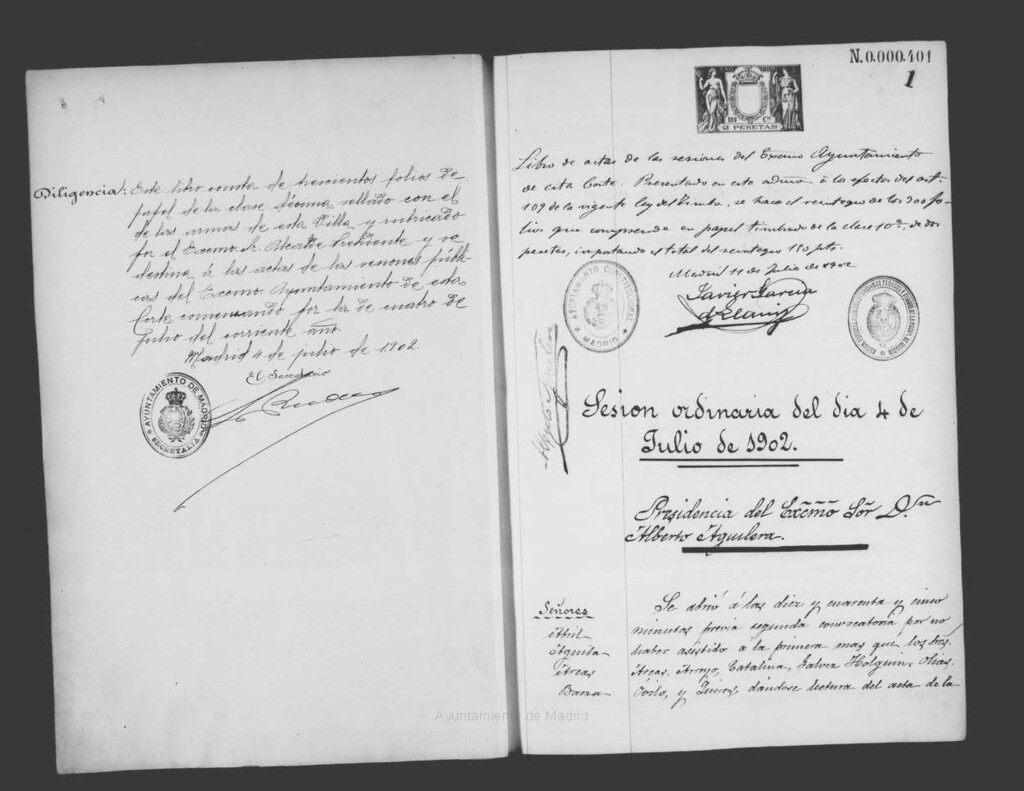 Diligencia: Este libro consta de trescientos folios de
papel de la clase décima sellado con el
de las armas de esta Villa y rubricado
por el Excmo. Sr. Alcalde Presidente y se
destina á las actas de las sesiones públi-
cas del Excmo. Ayuntamiento de esta
Corte comenzando por la de cuatro de
Julio del corriente año.
Madrid 4 de julio de 1902
El Secretario
AYUNTAMIENTO DE MADRID
SECRETARIA
N.0.000.401
1
2 PESETAS
Libro de actas de las sesiones del Excmo Ayuntamiento
de esta Corte. Presentado en esta admon á los efectos del art.
109 de la vigente ley del Timbre, se hace el reintegro de los 300 fo-
lios que comprende en papel timbrado de la clase 10ª, de dos
pesetas, importando el total del reintegro 150 pts.
Madrid 11 de Julio de 1902
Javier García
AYUNTAMIENTO CONSTITUCIONAL
MADRID
Sesion ordinaria del dia 4 de
Julio de 1902.
Presidencia del Excmo Sor Dn
Alberto Aguilera.
Señores
Abril
Aguila
Arcas
Baeza
Se abrió á las diez y cuarenta y cinco
minutos previa segunda convocatoria por no
haber asistido á la primera mas que los Sres.
Arcas, Arroyo, Catalina, Galvez Holguin, Olias,
y Quiros, dándose lectura del acta de la
Ayuntamiento de Madrid